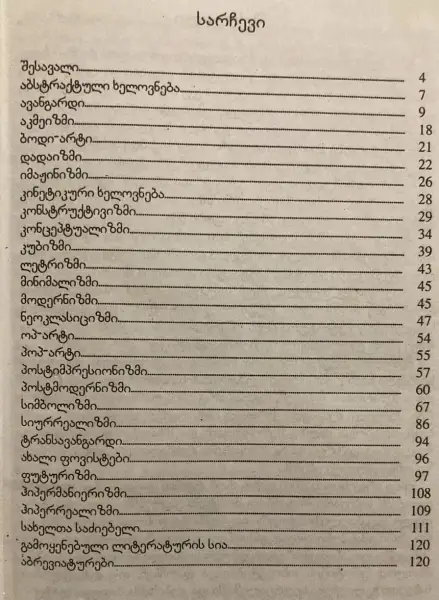 სარჩევი
შესავალი 4
აბსტრაქტული ხელოვნება 7
ავანგარდი 9
აკმეიზმი 18
ბოდი-არტი 21
დადაიზმი 22
იმაჟინიზმი 26
კინეტიკური ხელოვნება 28
კონსტრუქტივიზმი 29
კონცეპტუალიზმი 34
კუბიზმი 39
ლეტრიზმი 43
მინიმალიზმი 45
მოდერნიზმი 45
ნეოკლასიციზმი 47
ოპ-არტი 54
პოპ-არტი 55
პოსტიმპრესიონიზმი 57
პოსტმოდერნიზმი 60
სიმბოლიზმი 67
სიურრეალიზმი 86
ტრანსავანგარდი 94
ახალი ფოვისტები 96
ფუტურიზმი 97
ჰიპერმანიერიზმი 108
ჰიპერრეალიზმი 109
სახელთა საძიებელი 111
გამოყენებული ლიტერატურის სია 120
აბრევიატურები 120